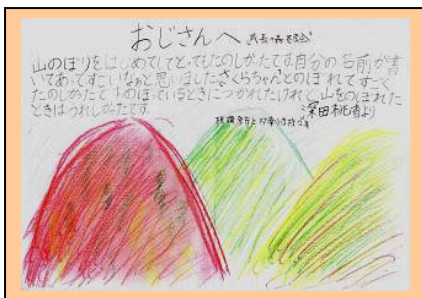 おじさんへ
山のぼりをはじめてしてとってもたのしかったです。自分の名前が書
いてあってすごいなぁと思いましたさくらちゃんとのぼれてすごく
たのしかったです のぼっているときにつかれたけれど、山をのぼれた
ときはうれしかったです。
深田桃香より